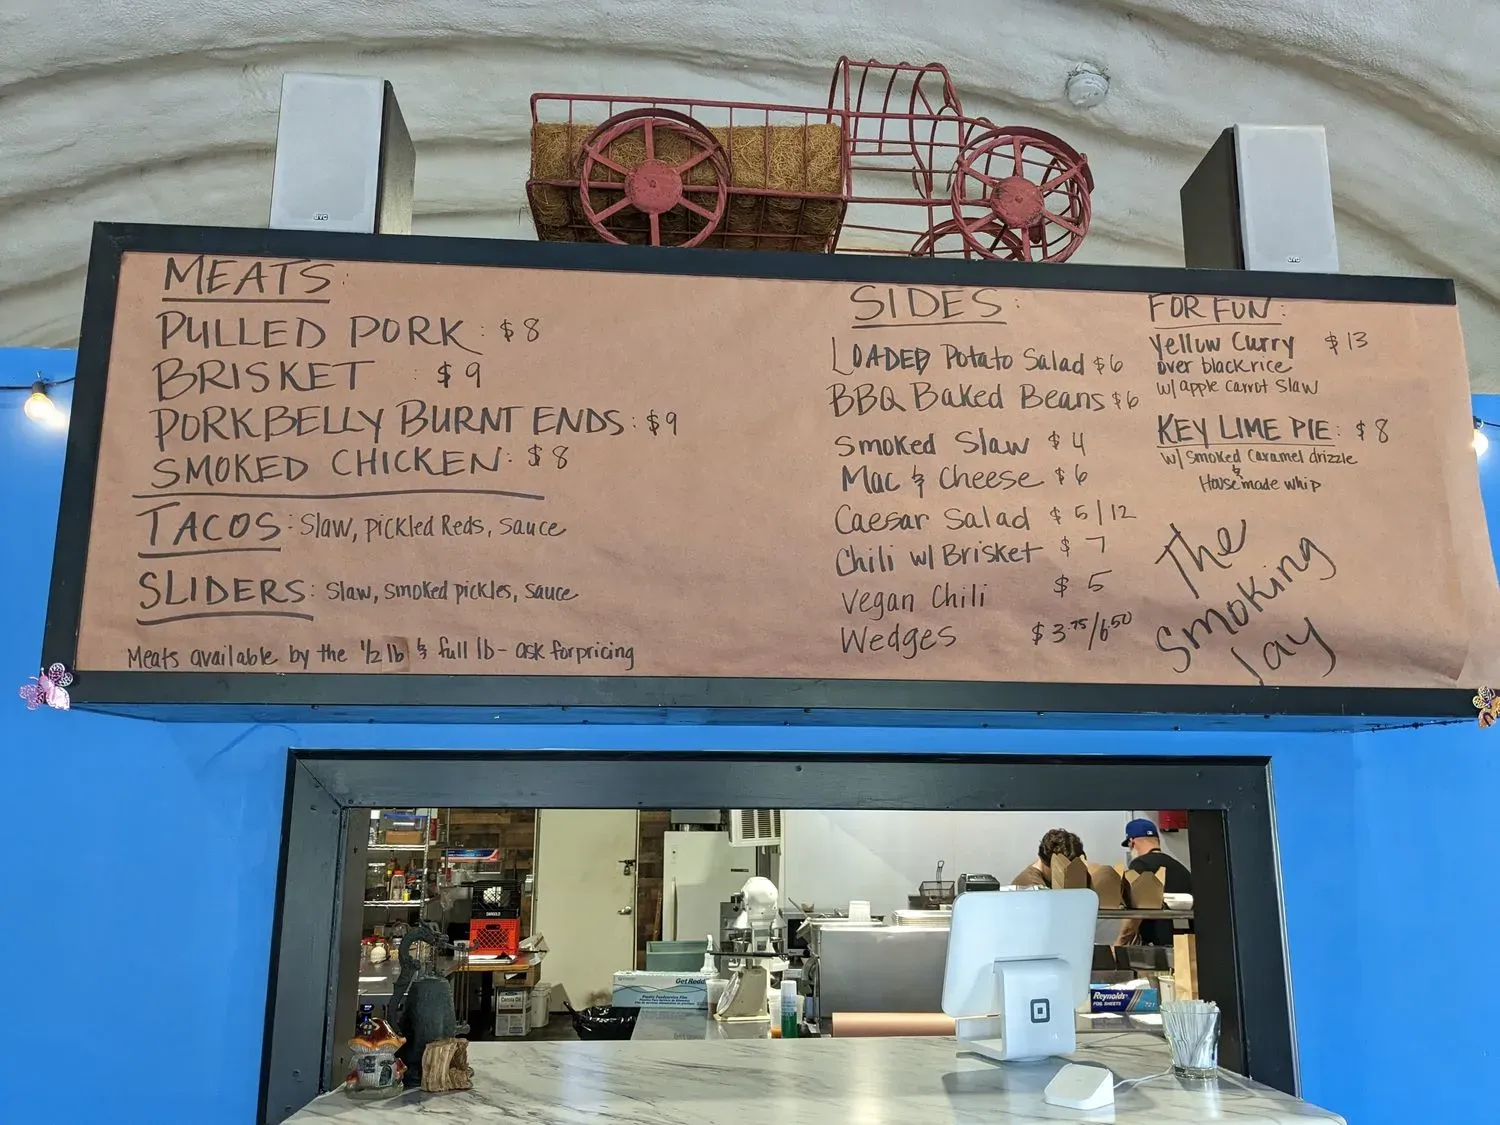 MEATS:
PULLED PORK: $8
BRISKET : $9
PORKBELLY BURNT ENDS: $9
SMOKED CHICKEN: $8
TACOS: Slaw, pickled Reds, sauce
SLIDERS: Slaw, smoked pickles, sauce
Meats available by the 1/2 lb & full lb - ask for pricing
SIDES:
LOADED Potato Salad $6
BBQ Baked Beans $6
Smoked Slaw $4
Mac & Cheese $6
Caesar Salad $5/12
Chili w/ Brisket $7
Vegan Chili $5
Wedges $3.75/6.50
FOR FUN:
Yellow Curry $13
over black rice
w/ apple carrot Slaw
KEY LIME PIE: $8
w/ Smoked Caramel drizzle
&
Housemade whip
The
Smoking
Jay
JVC
JVC
Reynolds
FOIL SHEETS